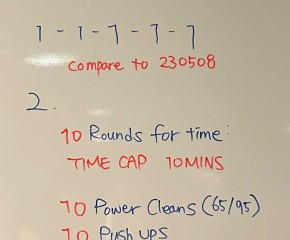 1-1-1-1-1
Compare to 230508
2.
10 Rounds for time:
TIME CAP 10MINS
10 Power Cleans (65/95)
10 Push UPS